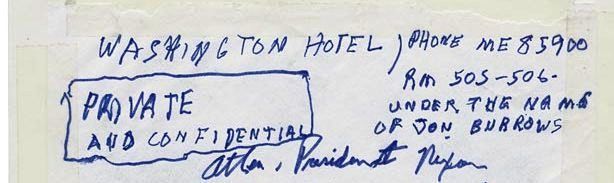 WASHINGTON HOTEL, PHONE ME 85900
RM 505-506-
UNDER THE NAME
OF JON BURROWS
PRIVATE
AND CONFIDENTIAL
Attn. President Nixon